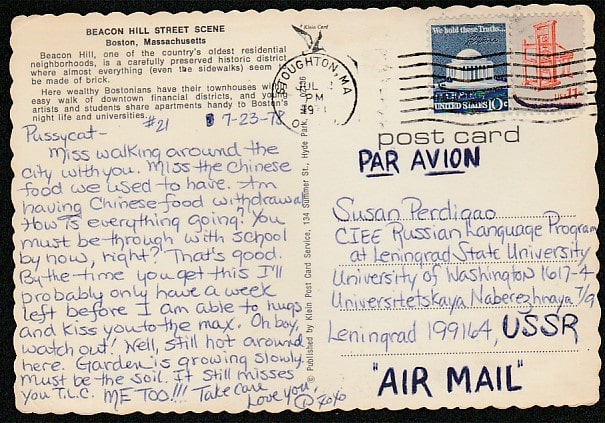 BEACON HILL STREET SCENE
Boston, Massachusetts
Beacon Hill, one of the country's oldest residential
neighborhoods, is a carefully preserved historic district
where almost everything (even the sidewalks) seem to
be made of brick.
Here wealthy Bostonians have their townhouses wi
easy walk of downtown financial districts, and young
artists and students share apartments handy to Boston's
night life and universities.
#21
7-23-78
Pussycat-
Miss walking around the
city with you. Miss the Chinese
food we used to have. Am
having Chinese food withdrawal
How is everything going? You
must be through with school
by now, right? That's good.
By the time you get this I'll
probably only have a week
left before I am able to hugs
and kiss you to the max. Oh boy,
watch out! Well, still hot around
here. Garden is growing slowly.
Must be the soil. It still misses
you T.L.C. ME TOO!!! Take care
Love you,
xoxo
Klein Card
© Published by Klein Post Card Service, 134 Summer St., Hyde Park,
STOUGHTON, MA
JUL
PM
We hold these Truths...
UNITED STATES 10c
post card
PAR AVION
Susan Perdigao
CIEE Russian Language Program
at Leningrad State University
University of Washington 1617-4
Universitetskaya Naberezhnaya 7/9
Leningrad 199164, USSR
"AIR MAIL"